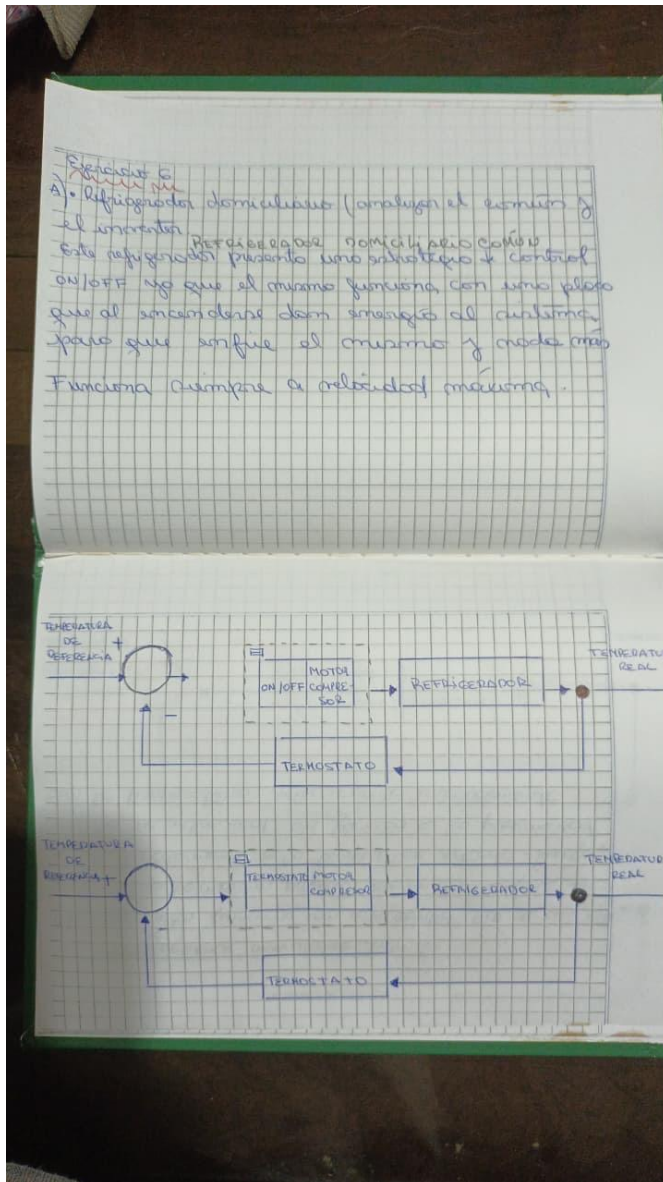 Ejercicio 6
A) • Refrigerador domiciliario (analizar el común y
el inverter
REFRIGERADOR DOMICILIARIO COMÚN
Este refrigerador presenta una estrategia control
ON/OFF ya que el mismo funciona con una placa
que al encenderse dan energía al sistema
para que enfue el mismo y nada más
Funciona siempre a velocidad máxima.
TEMPERATURA
DE
REFERENCIA
+
-
ON/OFF
MOTOR
COMPRE-
SOR
REFRIGERADOR
TEMPERATU
REAL
TERMOSTATO
TEMPERATURA
DE
REFERENCIA +
-
TERMOSTATO
MOTOR
COMPRESOR
REFRIGERADOR
TEMPERATU
REAL
TERMOSTATO